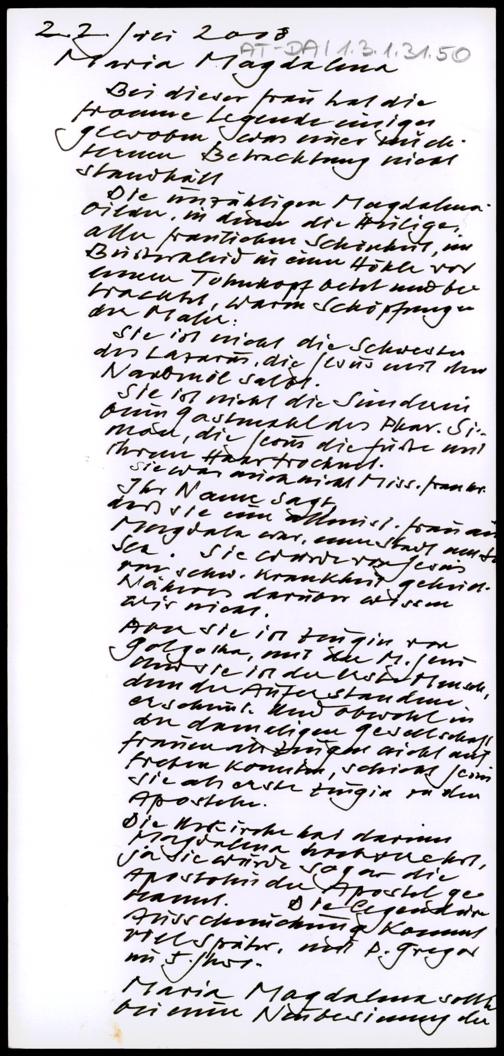 22. Juli 2008
AT-DA/1.3.1.31.50
Maria Magdalena
Bei dieser Frau hat die
fromme Legende einiges
gewoben, was einer nüch-
ternen Betrachtung nicht
standhält
Die unzähligen Magdalena-
bilder, in denen die Heilige,
aller fraulichen Schönheit, im
Busskleid in einer Höhle vor
einem Totenkopf betet und be-
trachtet, waren Schöpfungen
der Maler.
Sie ist nicht die Schwester
des Lazarus, die Jesus mit dem
Nardenöl salbt.
Sie ist nicht die Sünderin
beim Gastmahl des Phar. Si-
mon, die Jesus die Füße mit
ihrem Haar trocknet.
Sie war auch nicht
Ihr Name sagt,
daß sie eine Frau aus
Magdala war, einer Stadt am See
Gen. Sie wurde von Jesus
von schw. Krankheit geheilt.
Näheres darüber wissen
wir nicht.
Aber sie ist Zeugin von
Golgotha, mit der M. Jesu
und sie ist der erste Mensch,
dem der Auferstandene
erscheint. Und obwohl in
der damaligen Gesellschaft
Frauen als Zeugen nicht auf-
treten konnten, schickt Jesus
sie als erste Zeugin zu den
Aposteln.
Die Urkirche hat darum
Magdalena hochverehrt,
ja sie wurde sogar die
Apostolin der Apostel ge-
nannt. Die legendäre
Ausschmückung kommt
viel später, mit P. Gregor
im Jhdt.
Maria Magdalena sollte
bei einer Neubesinnung der